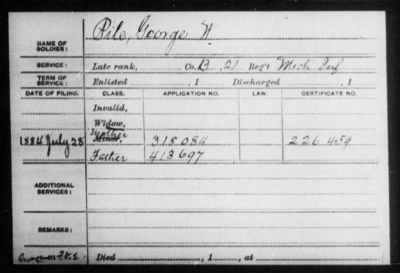 NAME OF SOLDIER: Pile, George W.
SERVICE: Late rank, Co. B, 21 Reg't Mich Inf
TERM OF SERVICE: Enlisted , 1 Discharged , 1
DATE OF FILING. CLASS. APPLICATION NO. LAW. CERTIFICATE NO.
Invalid,
Widow,
Mother
1884 July 28 Minor, 318.084 226.459
Father 413697
ADDITIONAL SERVICES:
REMARKS:
Died , 1 , at